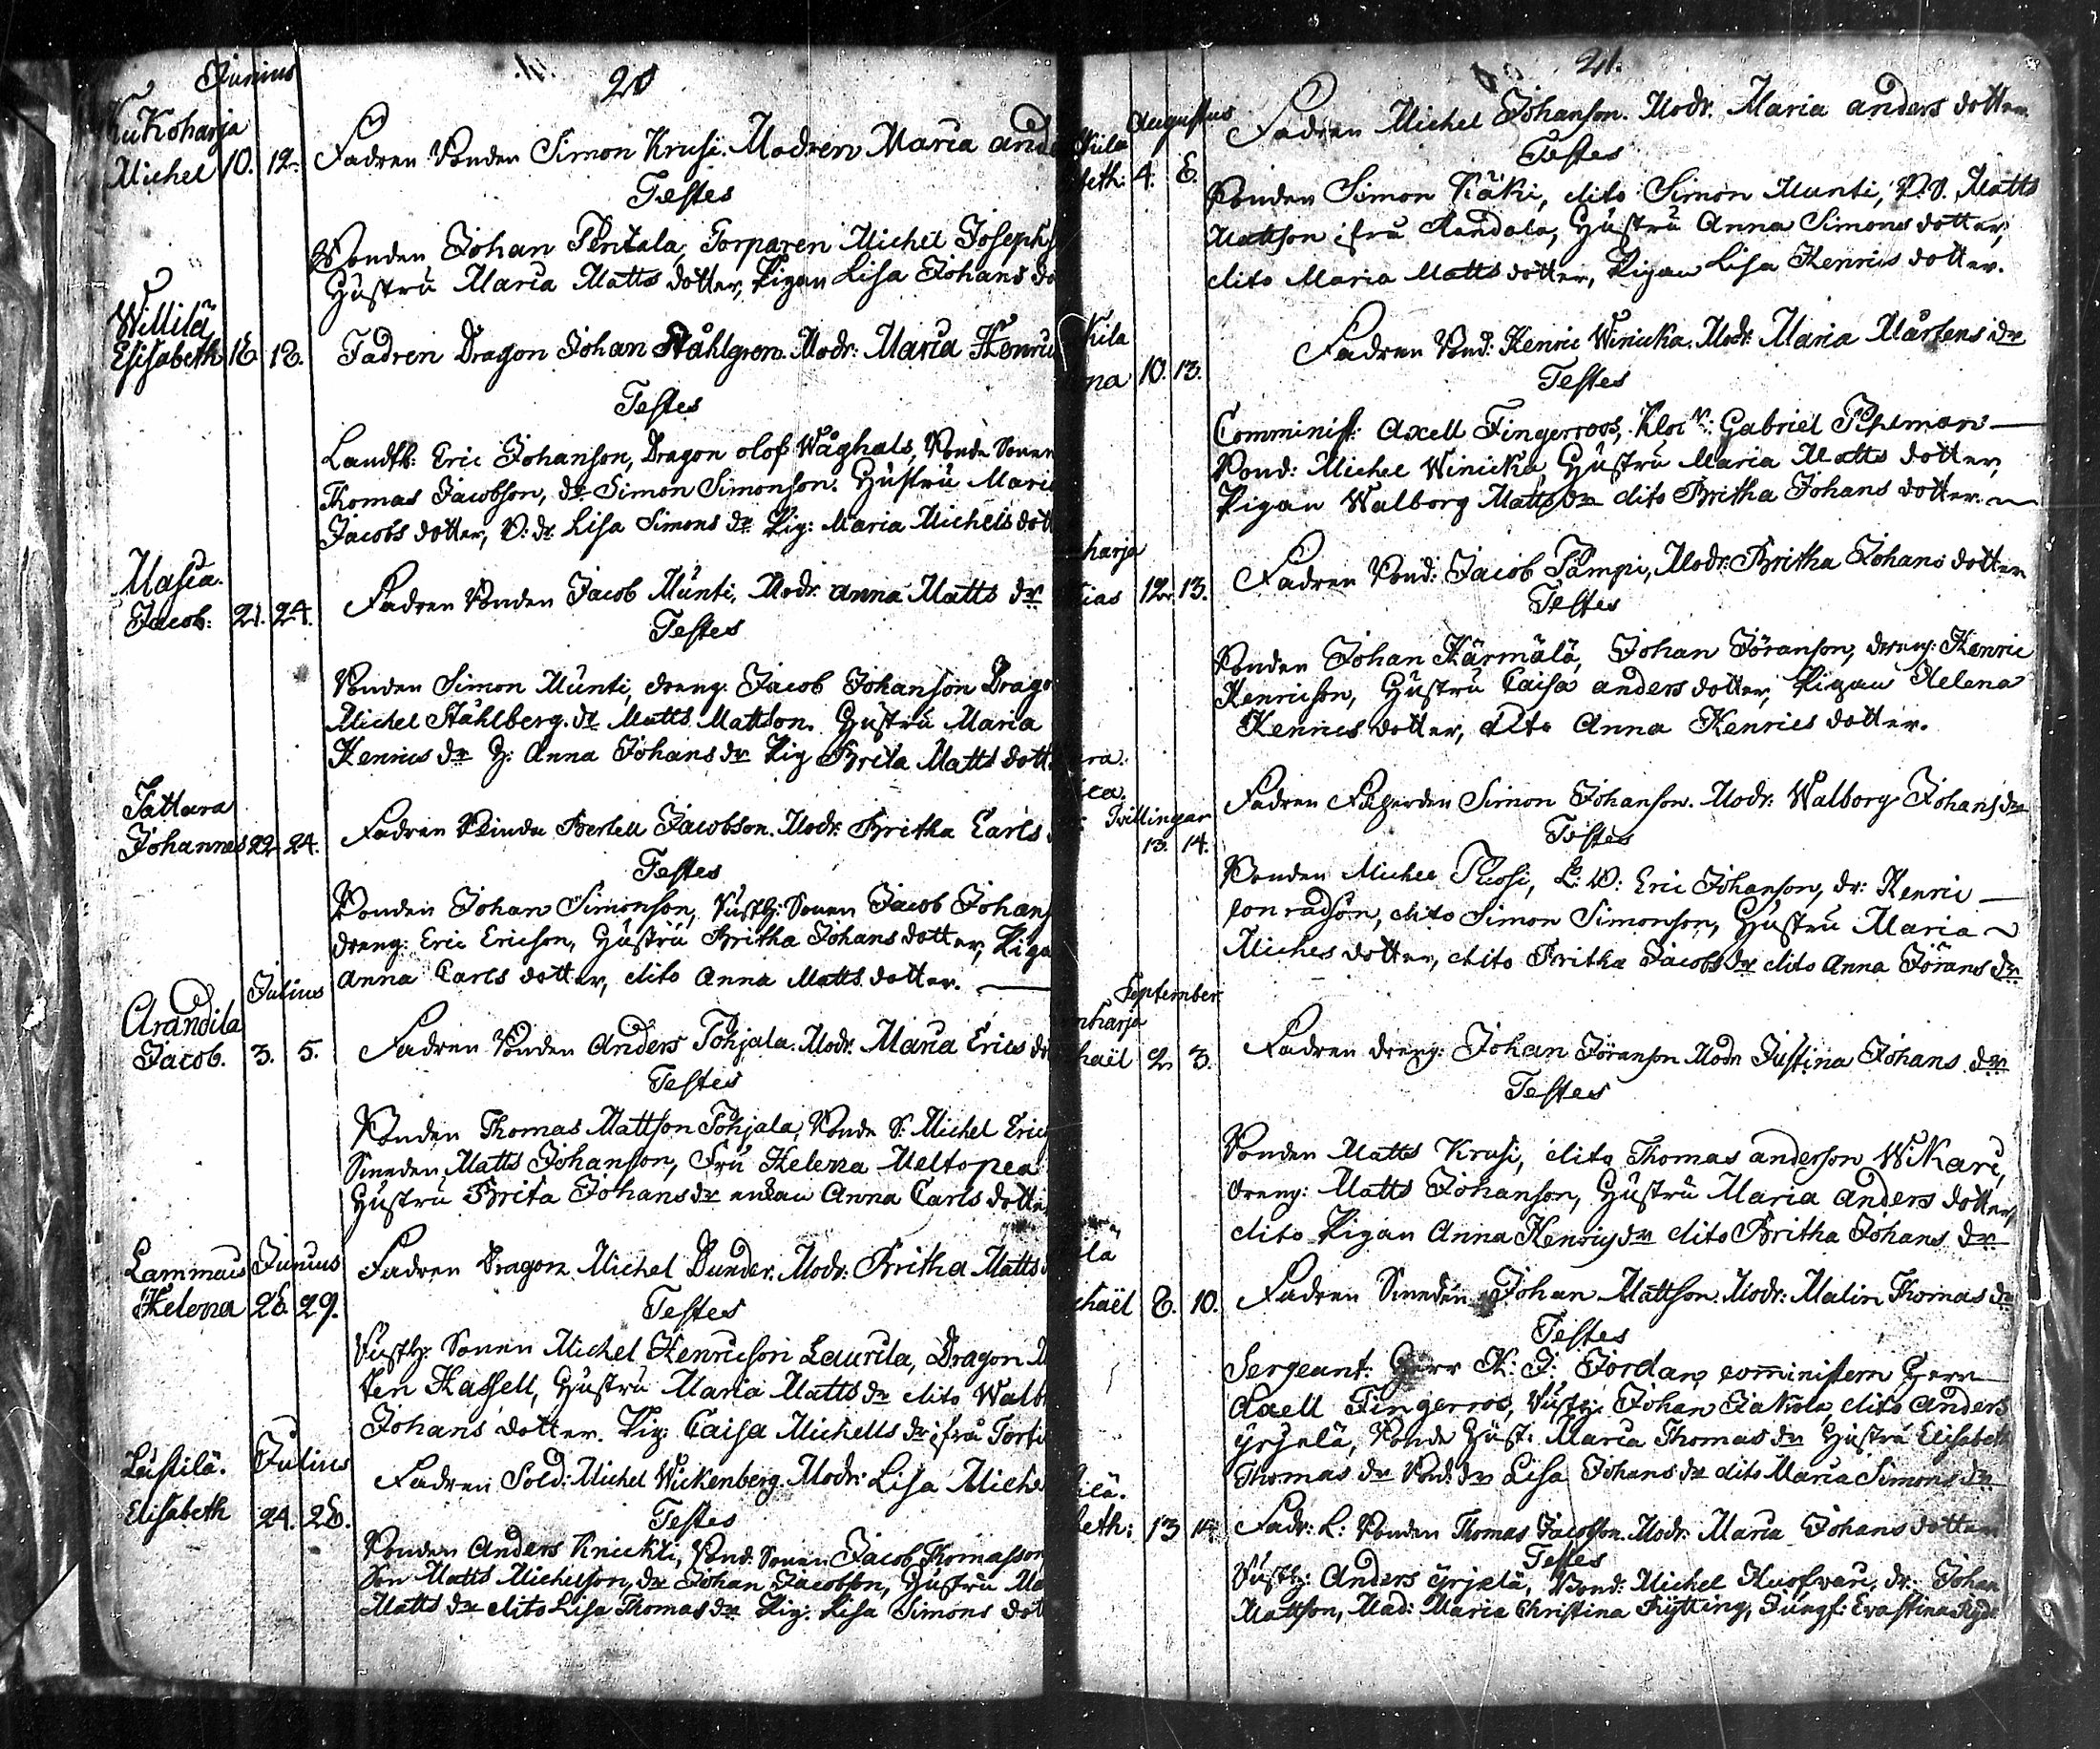 Junius
20
Kukoharja
Michel 10. 12. Fadren Bonden Simon Krusi. Modren Maria and
Testes
Bonden Johan Penttala, Torparen Michel Josephs
Hustru Maria Matts dotter, Pigan Lisa Johans do
Willilä
Elisabeth 16 18. Fadren Dragon Johan Ståhlgren. Modr: Maria Henric
Testes
Landtb: Eric Johanson, Dragon olof Wåghals, Bonde Sonen
Thomas Jacobson, dr Simon Simonson. Hustru Mari
Jacobs dotter, B: dr Lisa Simons dr Pig: Maria Michels dott
Masia.
Jacob: 21. 24. Fadren Bonden Jacob Munti, Modr. anna Matts dr
Testes
Bonden Simon Munti, dreng: Jacob Johanson Drago
Michel Ståhlberg. dr Matts Mattson. Hustru Maria
Henrics dr H: Anna Johans dr Pig Brita Matts dott
Tattara
Johannes 22 24. Fadren Bertell Jacobson. Modr: Britha Carls
Testes
Bonden Johan Simonson, Rusth: Sonen Jacob Johans
dreng: Eric Ericson, Hustru Britha Johans dotter, Piga
Anna Carls dotter, dito Anna Matts dotter.
Julius
Arandila
Jacob. 3. 5. Fadren Bonden Anders Pohjala. Modr. Maria Erics dr
Testes
Bonden Thomas Mattson Pohjala, Bonde S: Michel Eric
Smeden Matts Johanson, Fru Helena Meltopea
Hustru Brita Johans dr enkan Anna Carls dotte
Lammais Junius
Helena 26 29. Fadren Dragon Michel Dunder. Modr: Britha Matts
Testes
Rusth: Sonen Michel Henricson Laurila, Dragon
ten Hassell, Hustru Maria Matts dr dito Walb
Johans dotter. Pig: Caisa Michells dr ifrå Torti
Leistilä. Julius
Elisabeth 24. 26. Fadren Sold: Michel Wickenberg. Modr: Lisa Miche
Testes
Bonden Anders Knickti, Bond: Sonen Jacob Thomasson
Son Matts Michelson, dr Johan Jacobson, Hustru Ma
Matts dr dito Lisa Thomas dr Pig: Lisa Simons dot
21.
Augustus
Kiila
beth: 4. 6. Fadren Michel Johanson. Modr. Maria anders dotter
Testes
Bonden Simon Käki, dito Simon Munti, Matts
Mattson ifrå Handola, Hustru Anna Simons dotter,
dito Maria Matts dotter, Pigan Lisa Henrics dotter.
Kiila
na 10. 13. Fadren Bond: Henric Winicka. Modr: Maria Mårtens dr
Testes
Comminist: Axell Fingerroos, Gabriel Polviander
Bond: Michel Winicka, Hustru Maria Matts dotter,
Pigan Walborg Matts dr dito Britha Johans dotter.
harja
ias 12. 13. Fadren Bond: Jacob Pämpi, Modr: Britha Johans dotter
Testes
Bonden Johan Härmälä, Johan Jöranson, dreng: Henric
Henricson, Hustru Caisa anders dotter, Pigan Helena
Henrics dotter, dito Anna Henrics dotter.
ara.
ica. Fadren Simon Johanson. Modr: Walborg Johans dr
Twillingar
13. 14. Testes
Bonden Michel Ruosi, Eric Johanson, dr: Henric
Conradson, dito Simon Simonson, Hustru Maria
Michels dotter, dito Britha Jacobs dr dito Anna Jörans dr
September
harja
hail 2. 3. Fadren dreng: Johan Jöranson Modr Justina Johans dr
Testes
Bonden Matts Krusi, dito Thomas anderson Wikari,
dreng: Matts Johanson, Hustru Maria Anders dotter,
dito Pigan Anna Henrics dr dito Britha Johans dr
lä
chaël 8. 10. Fadren Smeden Johan Mattson. Modr: Malin Thomas dr
Testes
Sergeant: Herr K: J: Jordan, comministern Herr
Axell Fingerros, Rusth: Johan Jakola, dito Anders
Yrjelä, Bonde Hust: Maria Thomas dr Hustru Elisabeth
Thomas dr Bond: dr Lisa Johans dr dito Maria Simons dr
ilä.
beth: 13 14. Fadr: L: Bonden Thomas Jacobson. Modr: Maria Johans dotter
Testes
Rusth: Anders Yrjelä, Bond: Michel Kuoswari, dr: Johan
Mattson, Mad: Maria Christina Frÿtting, Jungf: Evastina